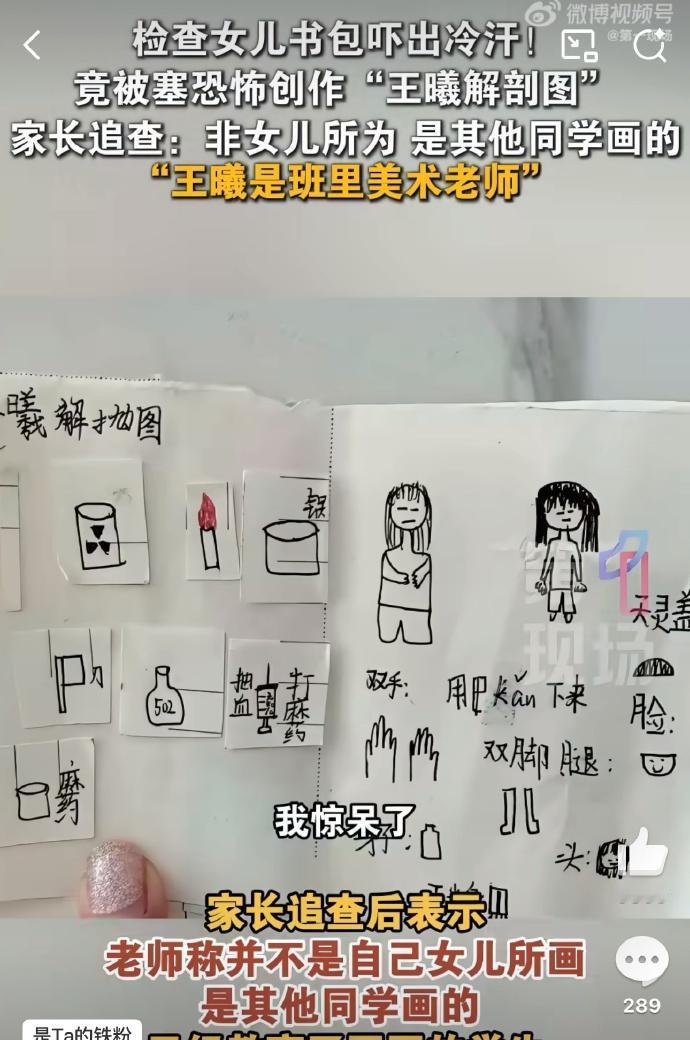 微博视频号
@第一现场
检查女儿书包吓出冷汗!
竟被塞恐怖创作“王曦解剖图”
家长追查：非女儿所为 是其他同学画的
“王曦是班里美术老师”
解抛图
锅
刀
502
抽血
打麻药
麻药
天灵盖
双手：
用 kǎn 下来
脸：
双脚 腿：
头：
第1现场
我惊呆了
家长追查后表示
老师称并不是自己女儿所画
是其他同学画的
289
是Ta的铁粉